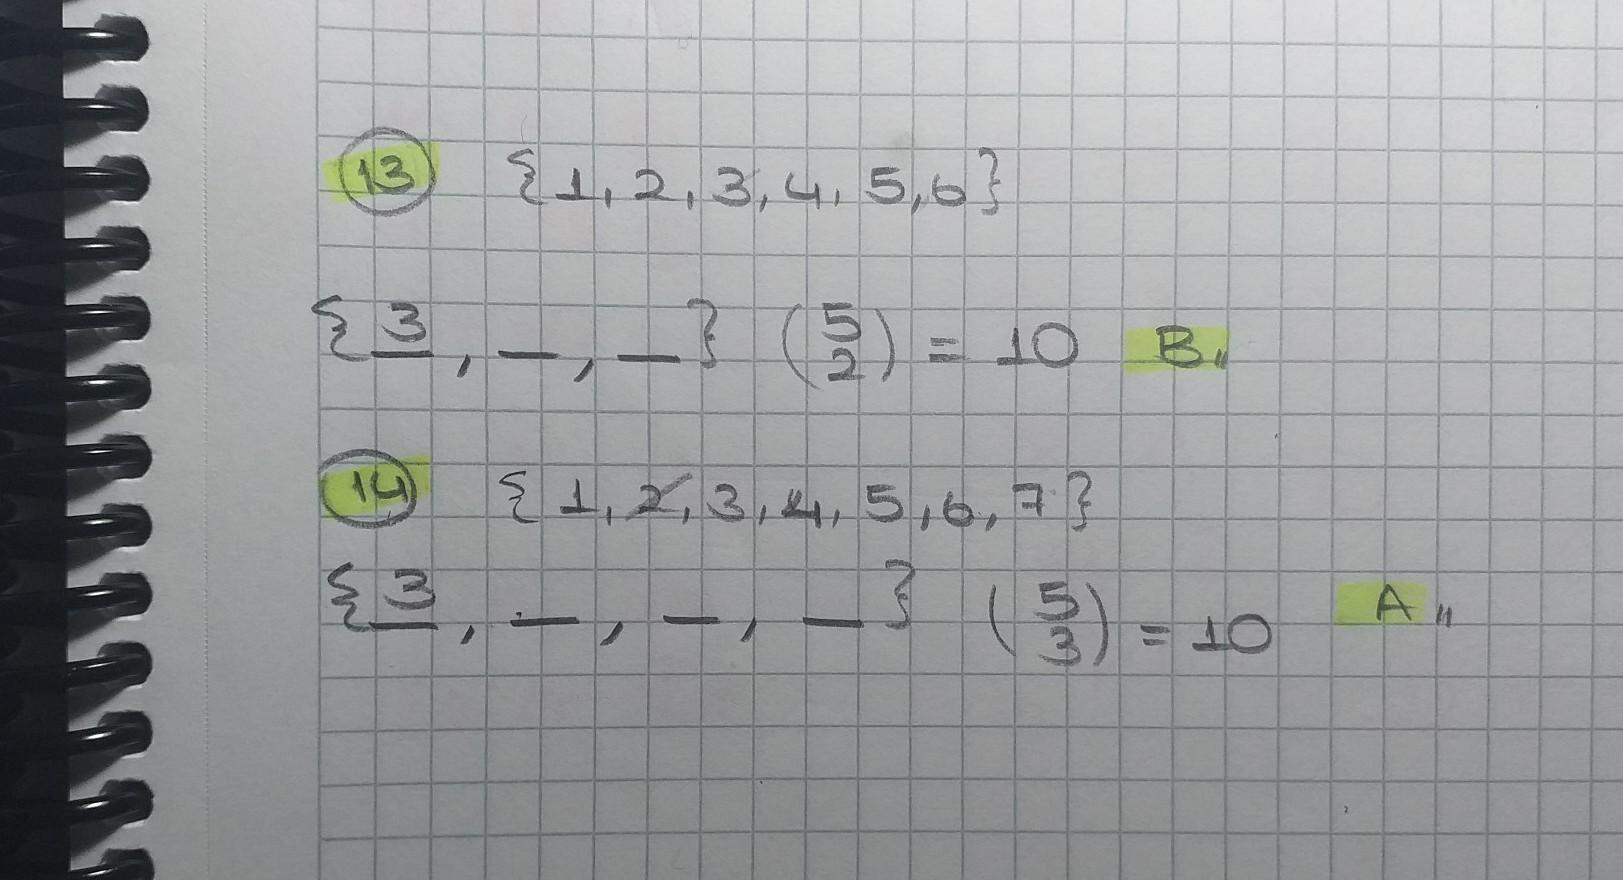 13 {1, 2, 3, 4, 5, 6}
{3, _, _} (5 2) = 10 B,,
14 {1, 2, 3, 4, 5, 6, 7}
{3, _, _, _} (5 3) = 10 A,,